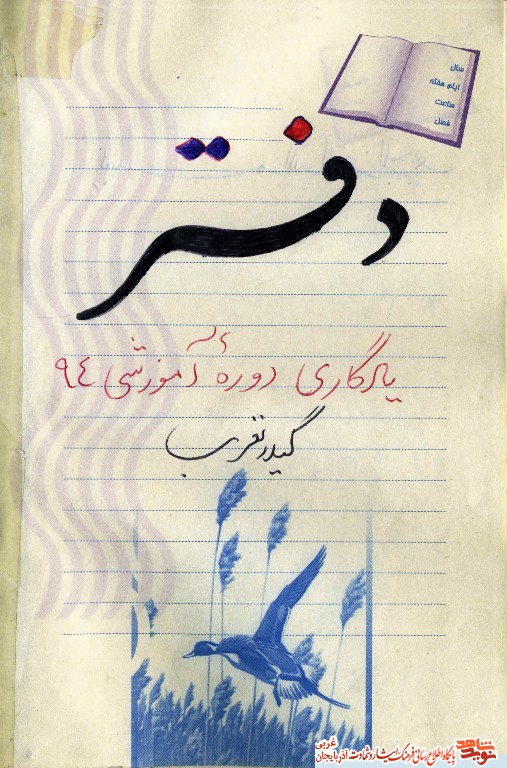 سال
ایام هفته
ساعت
فصل
دفتر
یادگاری دورهٔ آموزشی ٩٤
نوید شاهد
پایگاه اطلاع رسانی فرهنگ ایثار و شهادت آذربایجان غربی